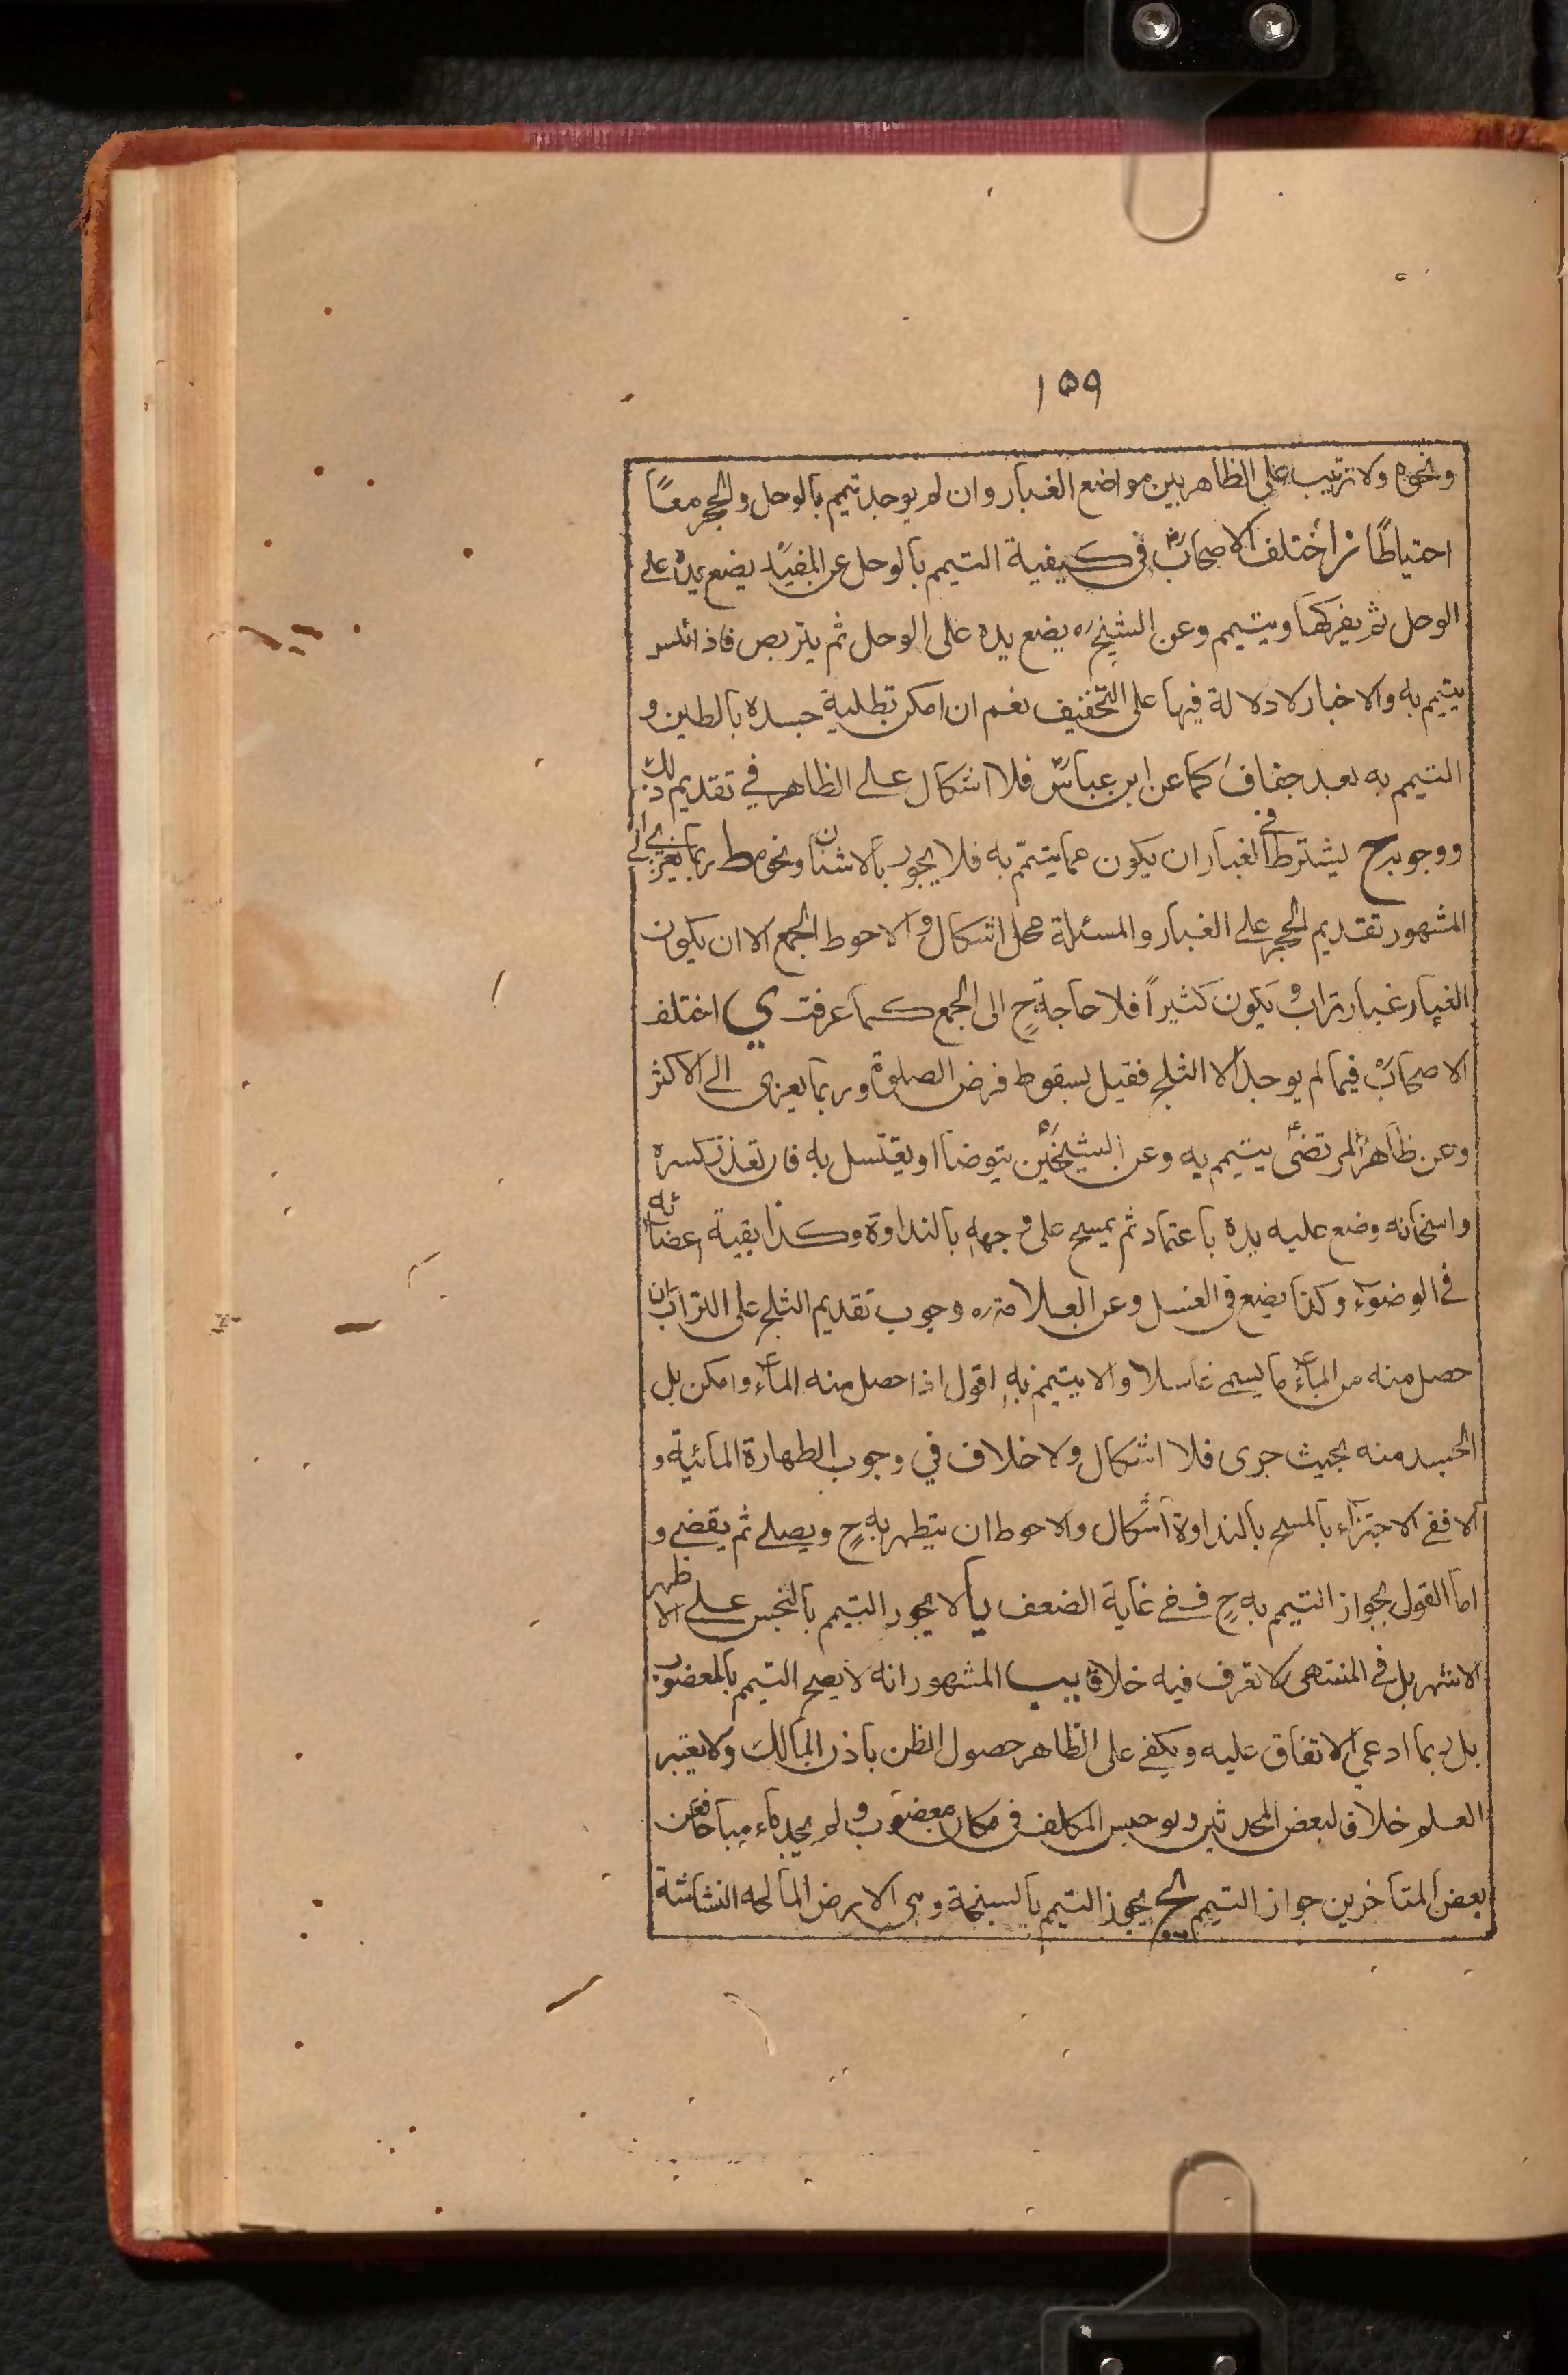 ١٥٩
ونحوه ولا ترتيب على الظاهر بين مواضع الغبار وان لم يوجد تيمم بالوحل والحجر معًا
احتياطًا ز اختلف الاصحابؓ في كيفية التيمم بالوحل عن المفيد يضع يده على
الوحل ثم يفركها ويتيمم وعن الشيخ ره يضع يده على الوحل ثم يتربص فاذا يبس
يتيمم به والاخبار لا دلالة فيها على التخفيف نعم ان امكن تطلية جسده بالطين و
التيمم به بعد جفاف كما عن ابن عباسؓ فلا اشكال على الظاهر في تقديم ذلك
ووجوبه ح يشترط في الغبار ان يكون مما يتيمّم به فلا يجوز بالاشنان ونحوه ط ربما يعزى الى
المشهور تقديم الحجر على الغبار والمسئلة محل اشكال والاحوط الجمع الا ان يكون
الغبار غبار تراب ويكون كثيراً فلا حاجة ح الى الجمع كما عرفت ي اختلف
الاصحاب فيما لم يوجد الا الثلج فقيل بسقوط فرض الصلوة وربما يعزى الى الاكثر
وعن ظاهر المرتضى يتيمم به وعن الشيخين يتوضأ او يغتسل به فان تعذر كسره
واسخانه وضع عليه يده باعتماد ثم يمسح على وجهه بالنداوة وكذا بقية اعضائه
في الوضوء وكذا يضع في الغسل وعن العلامة ره وجوب تقديم الثلج على التراب ان
حصل منه من الماء ما يسمى غاسلا والا يتيمم به اقول اذا حصل منه الماء وامكن بل
الجسد منه بحيث جرى فلا اشكال ولا خلاف في وجوب الطهارة المائية و
الا ففي الاجتزاء بالمسح بالنداوة اشكال والاحوط ان يتطهر به ح ويصلي ثم يقضي و
اما القول بجواز التيمم به ح ففي غاية الضعف يا لا يجوز التيمم بالنجس على الاظهر
الاشهر بل في المنتهى لا نعرف فيه خلافا يب المشهور انه لا يصح التيمم بالمغصوب
بل ربما ادعي الاتفاق عليه ويكفي على الظاهر حصول الظن باذن المالك ولا يعتبر
العلم خلافا لبعض المحدثين ولو حبس المكلف في مكان مغصوب ولم يجد ماء مباحا فعن
بعض المتأخرين جواز التيمم يج يجوز التيمم بالسبخة وهي الارض المالحة النشاشة